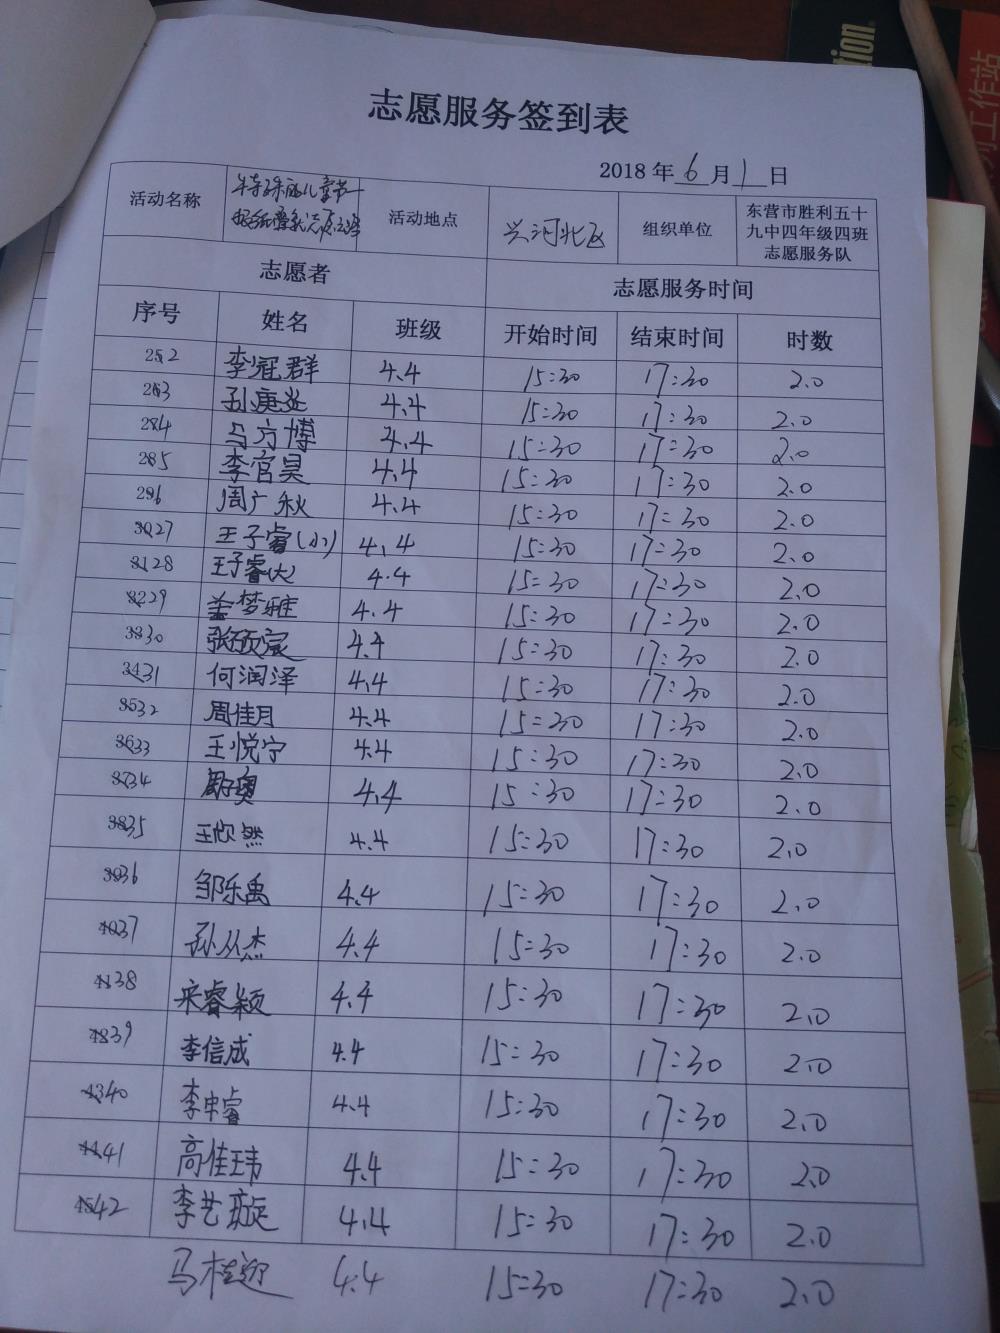 tion
列工作站
志愿服务签到表
2018年6月1日
活动名称
特殊的儿童节一
活动地点
兴河北区
组织单位
东营市胜利五十
九中四年级四班
志愿服务队
志愿者 志愿服务时间
序号 姓名 班级 开始时间 结束时间 时数
22 李冠群 4.4 15:30 17:30 2.0
23 孙庚炎 4.4 15:30 17:30 2.0
24 马方博 4.4 15:30 17:30 2.0
25 李官昊 4.4 15:30 17:30 2.0
26 周广秋 4.4 15:30 17:30 2.0
27 王子睿(小) 4.4 15:30 17:30 2.0
28 王子睿(大) 4.4 15:30 17:30 2.0
29 梦雅 4.4 15:30 17:30 2.0
30 张硕宸 4.4 15:30 17:30 2.0
31 何润泽 4.4 15:30 17:30 2.0
32 周佳月 4.4 15:30 17:30 2.0
33 王悦宁 4.4 15:30 17:30 2.0
34 4.4 15:30 17:30 2.0
35 王欣然 4.4 15:30 17:30 2.0
36 邹乐禹 4.4 15:30 17:30 2.0
37 孙从杰 4.4 15:30 17:30 2.0
38 宋睿颖 4.4 15:30 17:30 2.0
39 李信成 4.4 15:30 17:30 2.0
40 李申睿 4.4 15:30 17:30 2.0
41 高佳玮 4.4 15:30 17:30 2.0
42 李艺璇 4.4 15:30 17:30 2.0
马桂迎 4.4 15:30 17:30 2.0